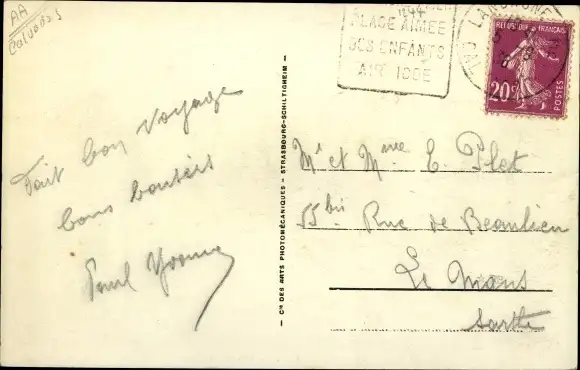 AA
Calvados
PLAGE AIMÉE
DES ENFANTS
AIR IODE
LANGRUNE
REPUBLIQUE FRANÇAISE
20c
POSTES
Fait bon voyage
bons baisers
Paul Yvonne
— Cie DES ARTS PHOTOMÉCANIQUES - STRASBOURG-SCHILTIGHEIM —
Mr et Mme E. Plet
55bis Rue de Beaulieu
Le Mans
Sarthe